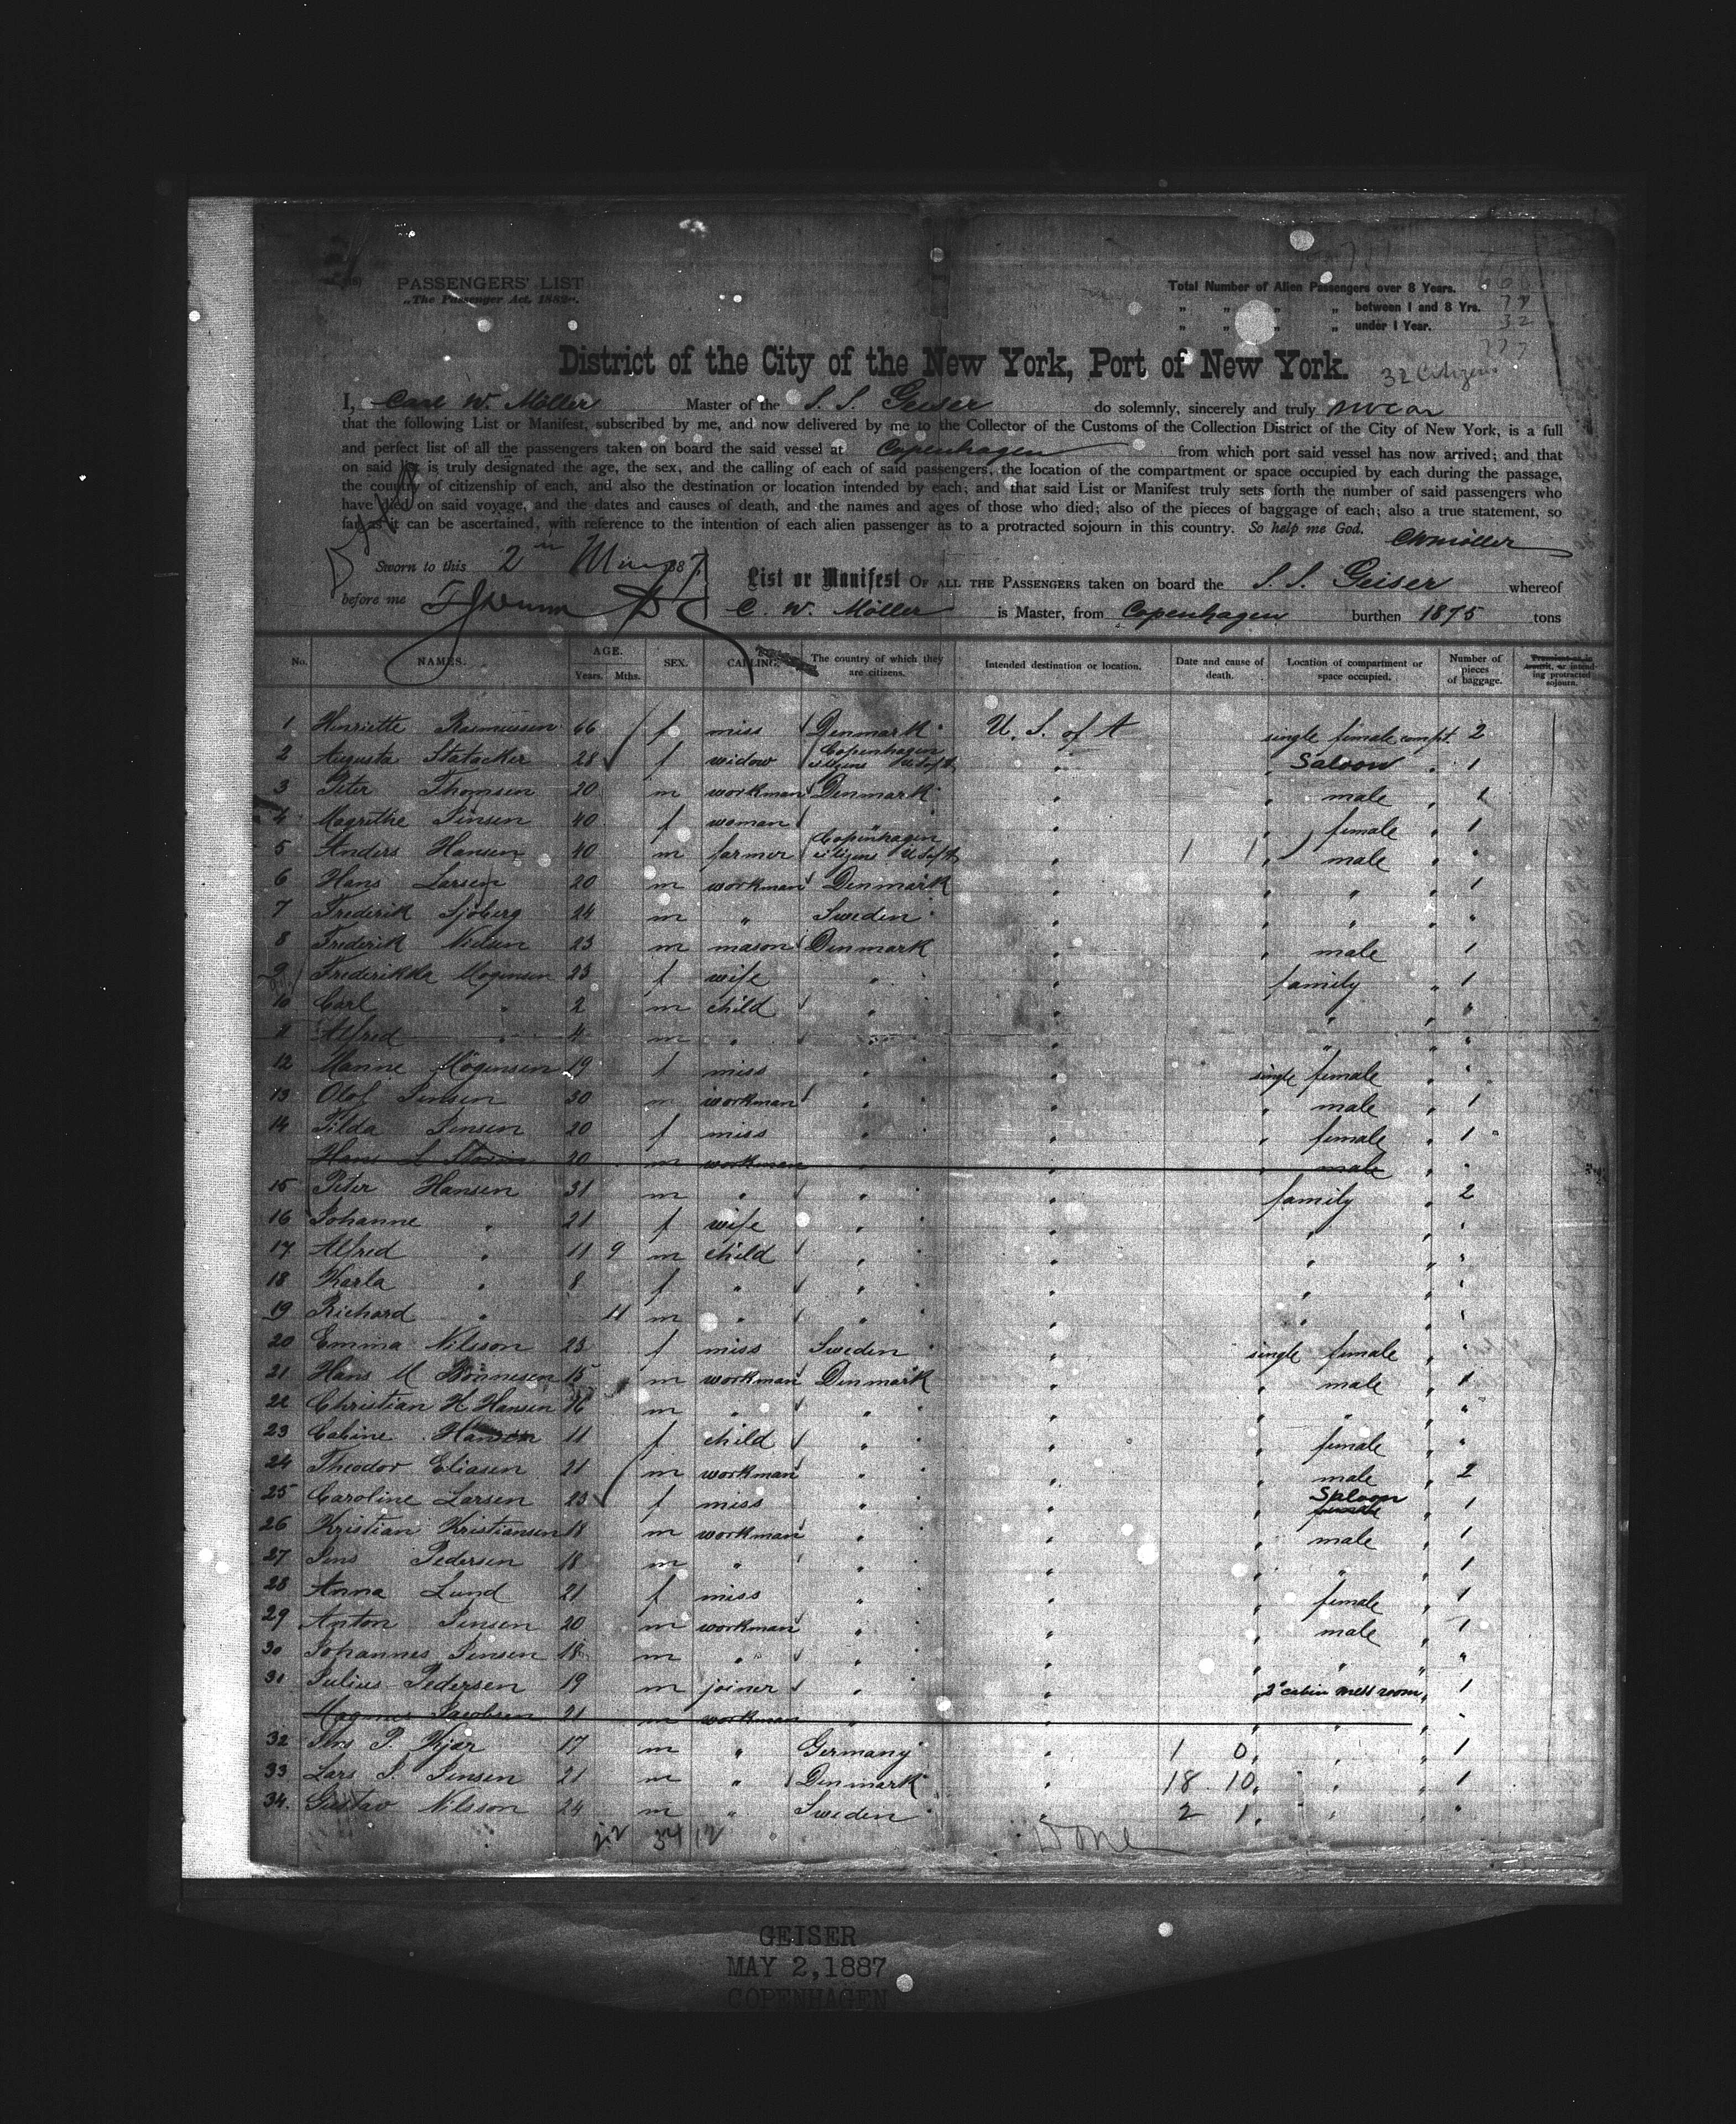 PASSENGERS' LIST
„The Passenger Act, 1882“.
Total Number of Alien Passengers over 8 Years.
„ „ „ „ between 1 and 8 Yrs. 79
„ „ „ „ under 1 Year. 32
777
District of the City of the New York, Port of New York.
32 Citizens
I, Carl W. Möller Master of the S. S. Geiser do solemnly, sincerely and truly swear
that the following List or Manifest, subscribed by me, and now delivered by me to the Collector of the Customs of the Collection District of the City of New York, is a full
and perfect list of all the passengers taken on board the said vessel at Copenhagen from which port said vessel has now arrived; and that
on said list is truly designated the age, the sex, and the calling of each of said passengers, the location of the compartment or space occupied by each during the passage,
the country of citizenship of each, and also the destination or location intended by each; and that said List or Manifest truly sets forth the number of said passengers who
have died on said voyage, and the dates and causes of death, and the names and ages of those who died; also of the pieces of baggage of each; also a true statement, so
far as it can be ascertained, with reference to the intention of each alien passenger as to a protracted sojourn in this country. So help me God.
CWMöller
Sworn to this 2 May 1887
before me
List or Manifest OF ALL THE PASSENGERS taken on board the S. S. Geiser whereof
C. W. Möller is Master, from Copenhagen burthen 1875 tons
No. NAMES. AGE. Years. Mths. SEX. CALLING. The country of which they are citizens. Intended destination or location. Date and cause of death. Location of compartment or space occupied. Number of pieces of baggage.
1 Henriette Rasmussen 66 f miss Denmark U. S. of A single female compt. 2
2 Augusta Statacker 28 f widow Copenhagen citizens U S of A „ Saloon „ 1
3 Peter Thomsen 20 m workman Denmark „ „ male „ 1
4 Magrethe Jensen 40 f woman „ „ „ female „ 1
5 Anders Hansen 40 m farmer Copenhagen citizens U S of A „ 1 1 „ male „ „
6 Hans Larsen 20 m workman Denmark „ „ „ „ 1
7 Frederik Sjöberg 24 m „ Sweden „ „ „ „ „
8 Frederik Nielsen 23 m mason Denmark „ „ male „ 1
9 Frederikka Mogensen 23 f wife „ „ family „ 1
10 Carl „ 2 m child „ „ „ „ „
11 Alfred „ 4 m „ „ „ „ „ „
12 Hanne Mogensen 19 f miss „ „ single female „ „
13 Olof Jensen 30 m workman „ „ „ male „ 1
14 Tilda Jensen 20 f miss „ „ „ female „ 1
Hans L Storm 20 m workman „ „ „ male „ „
15 Peter Hansen 31 m „ „ „ family „ 2
16 Johanne „ 21 f wife „ „ „ „ „
17 Alfred „ 11 9 m child „ „ „ „ „
18 Karla „ 8 f „ „ „ „ „ „
19 Richard „ 11 m „ „ „ „ „ „
20 Emma Nilsson 23 f miss Sweden „ single female „ „
21 Hans M Bönnesen 15 m workman Denmark „ „ male „ 1
22 Christian H Hansen m „ „ „ „ „ „ „
23 Cabine Hansen 11 f child „ „ „ female „ „
24 Theodor Eliasen 21 m workman „ „ „ male „ 2
25 Caroline Larsen 23 f miss „ „ „ Saloon female „ 1
26 Kristian Kristiansen 18 m workman „ „ „ male „ 1
27 Jens Pedersen 18 m „ „ „ „ „ „ 1
28 Anna Lund 21 f miss „ „ „ female „ 1
29 Anton Jensen 20 m workman „ „ „ male „ 1
30 Johannes Jensen 18 m „ „ „ „ „ „ „
31 Julius Pedersen 19 m joiner „ „ „ 2° cabin mess room „ 1
Magnus Jacobsen 21 m workman „ „ „ „ „ „
32 Jens P. Kjær 17 m „ Germany „ 1 0 „ „ „ 1
33 Lars J. Jensen 21 m „ Denmark „ 18 10 „ „ „ 1
34. Gustav Nilsson 24 m „ Sweden „ 2 1 „ „ „ „
22 34 12 Done
GEISER
MAY 2, 1887
COPENHAGEN